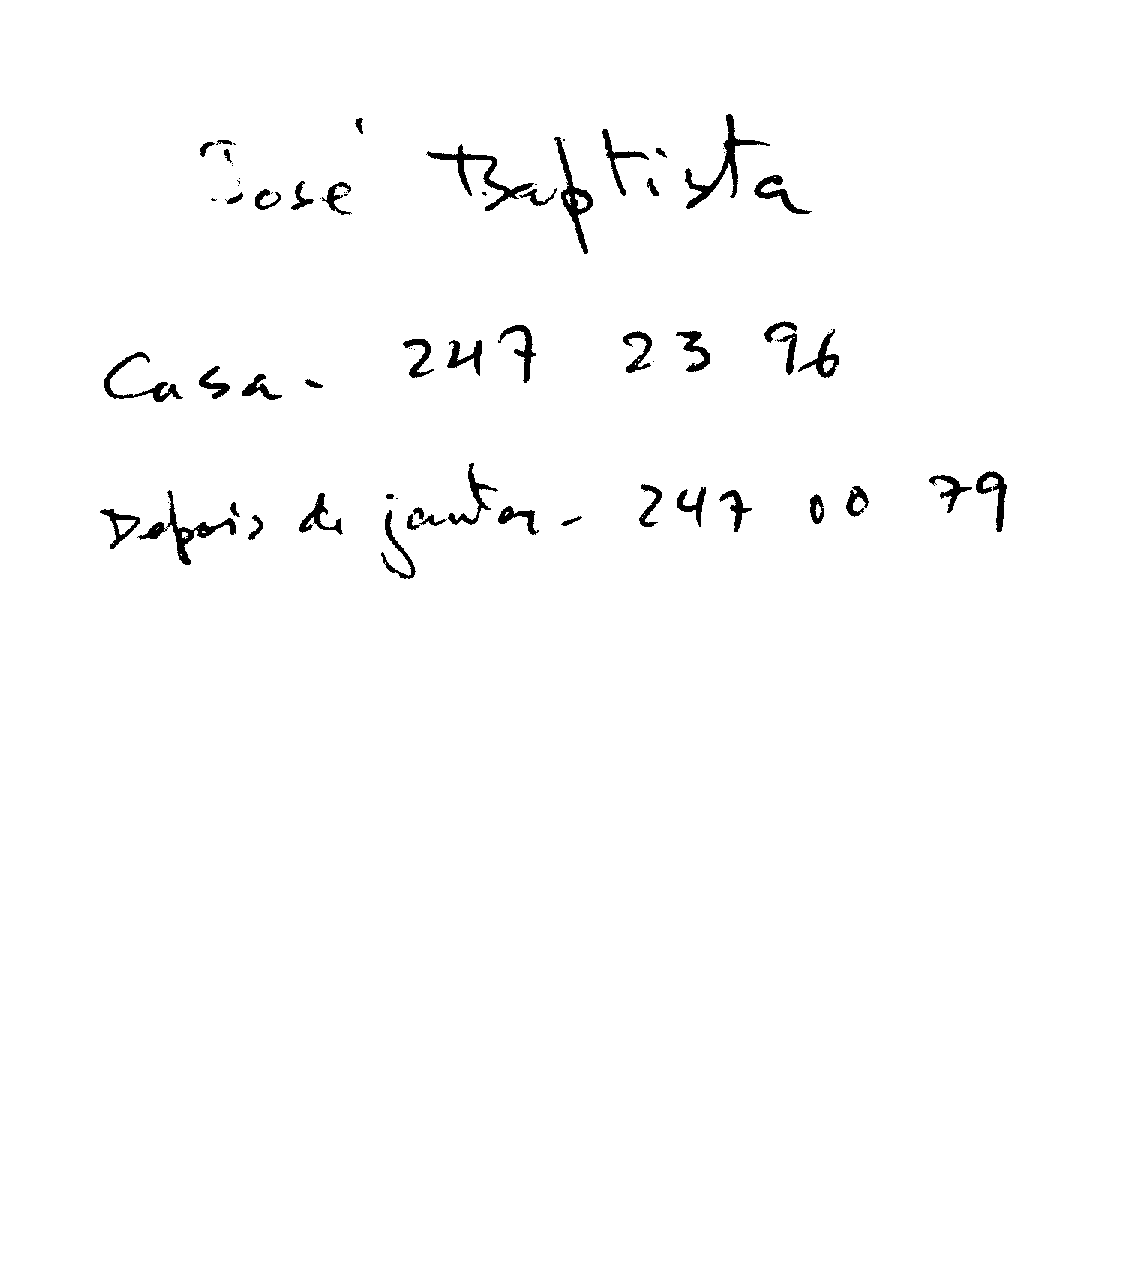 José Baptista
Casa - 247 23 96
Depois de jantar - 247 00 79